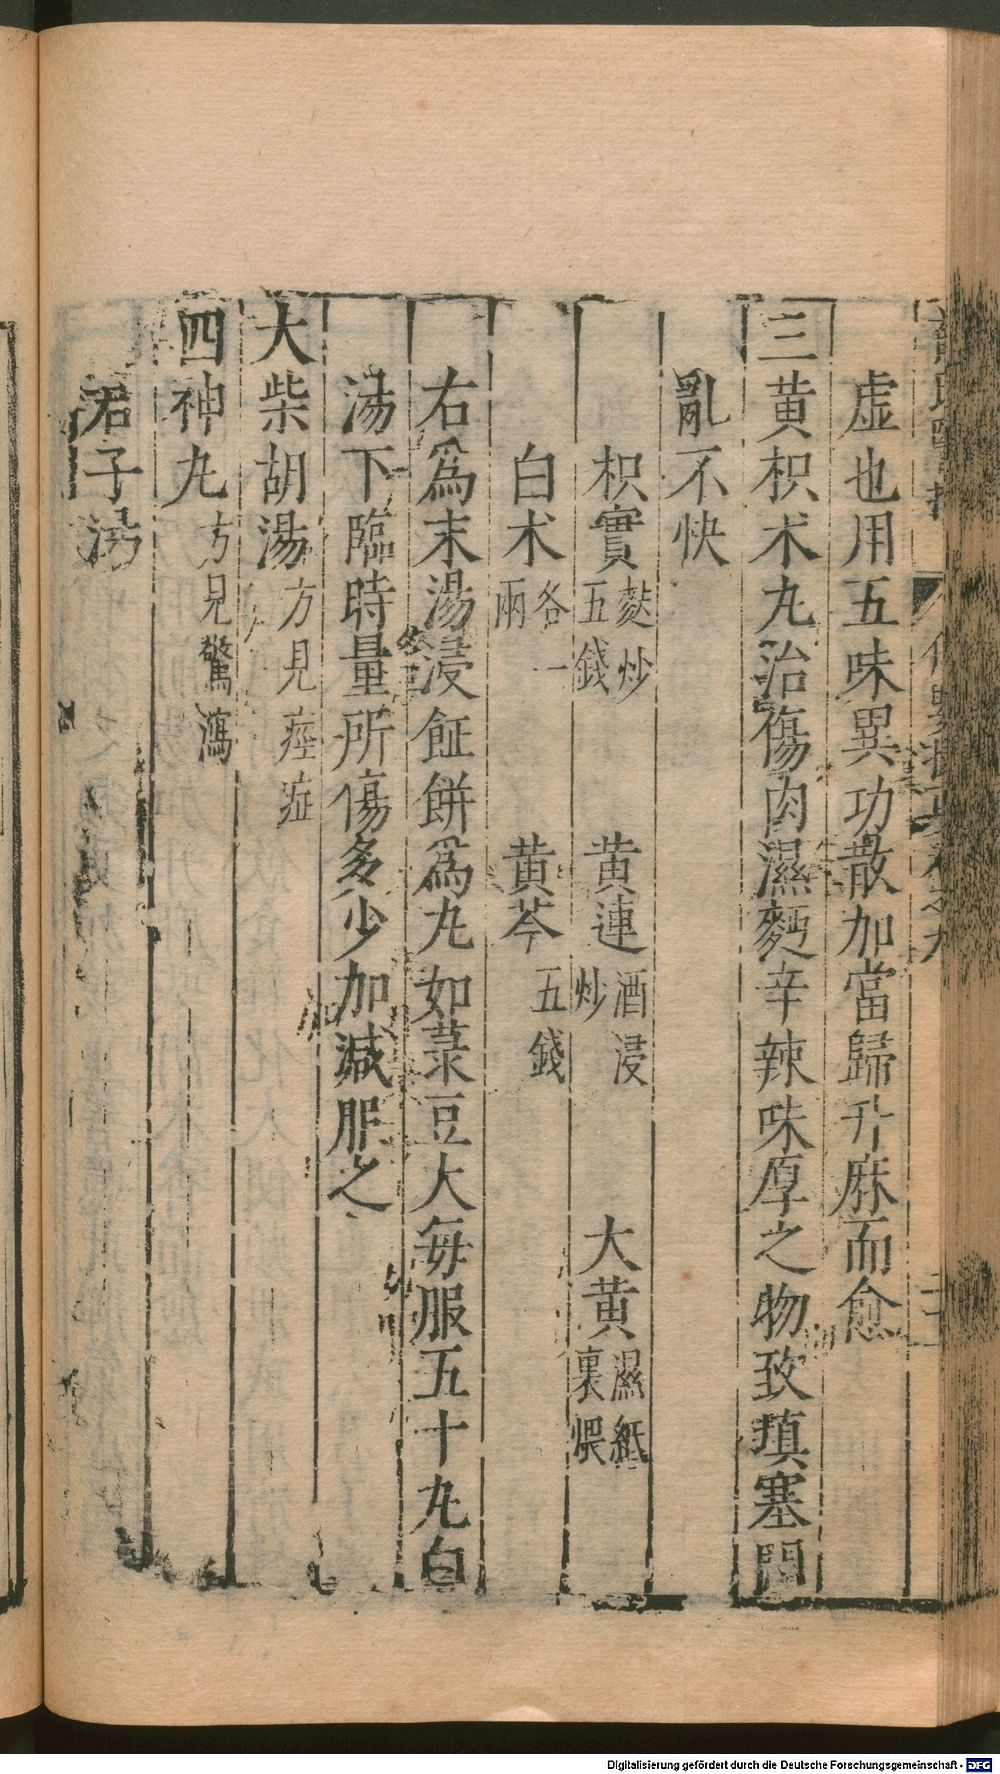 虚也用五味異功散加當歸升麻而愈
三黄枳术丸治傷肉濕麪辛辣味厚之物致填塞悶
亂不快
枳實麩炒五錢 黄連酒浸炒 大黄濕紙裏煨
白术各一兩 黄芩五錢
右爲末湯浸飪餅爲丸如菉豆大每服五十丸白
湯下臨時量所傷多少加減服之
大柴胡湯方見痙症
四神丸方見驚瀉
君子湯
Digitalisierung gefördert durch die Deutsche Forschungsgemeinschaft - DFG